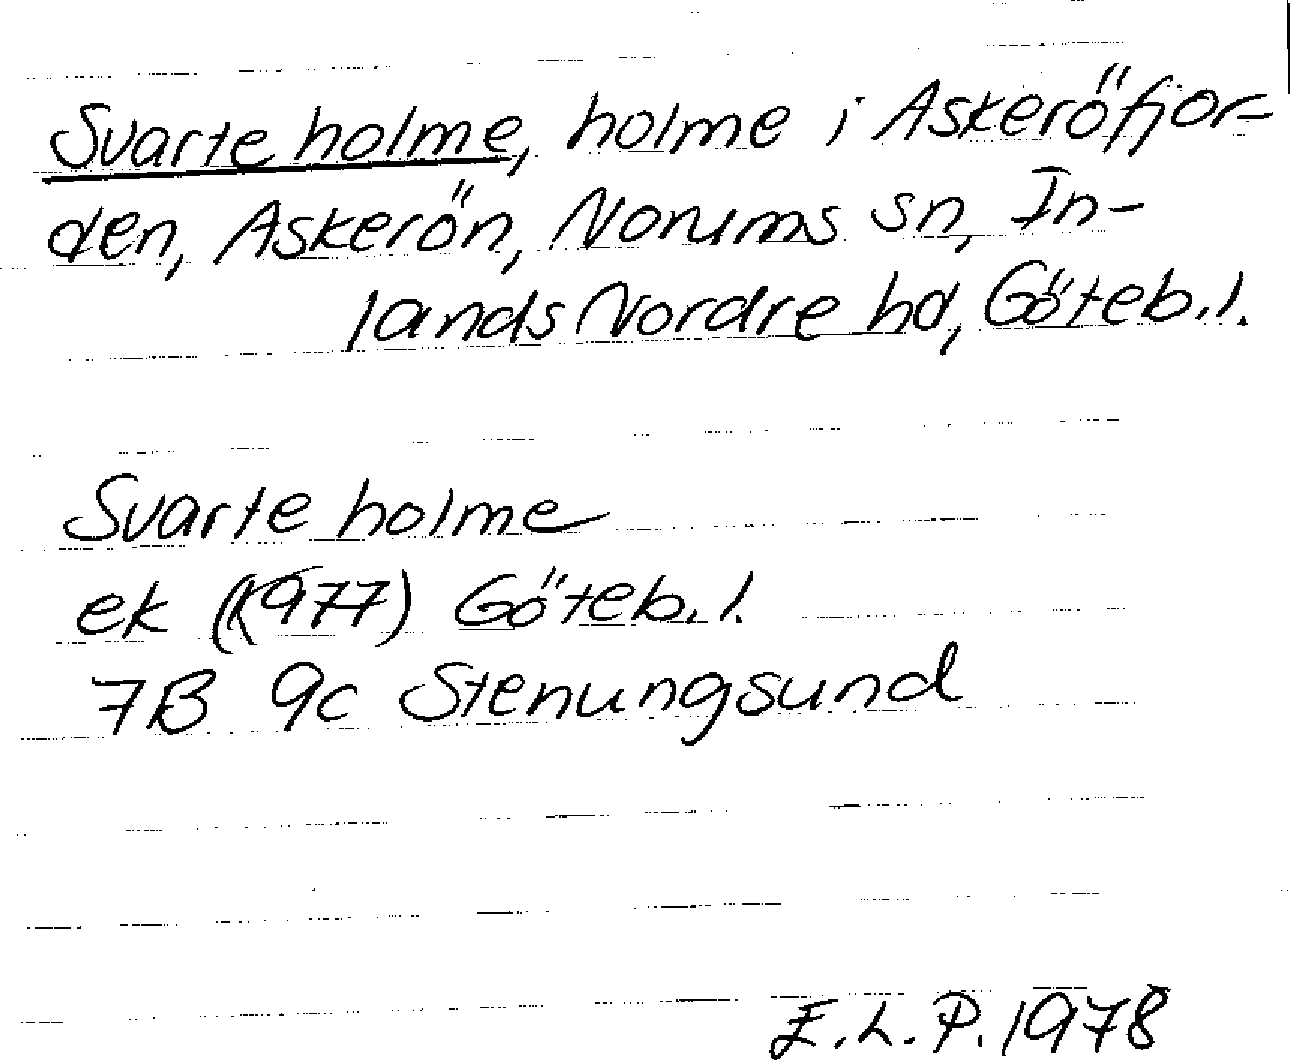 Svarte holme, holme i Askeröfjor-
den, Askerön, Norums sn, In-
lands Nordre hd, Göteb.l.
Svarte holme
ek (1977) Göteb.l.
7B 9c Stenungsund
E.L.P. 1978